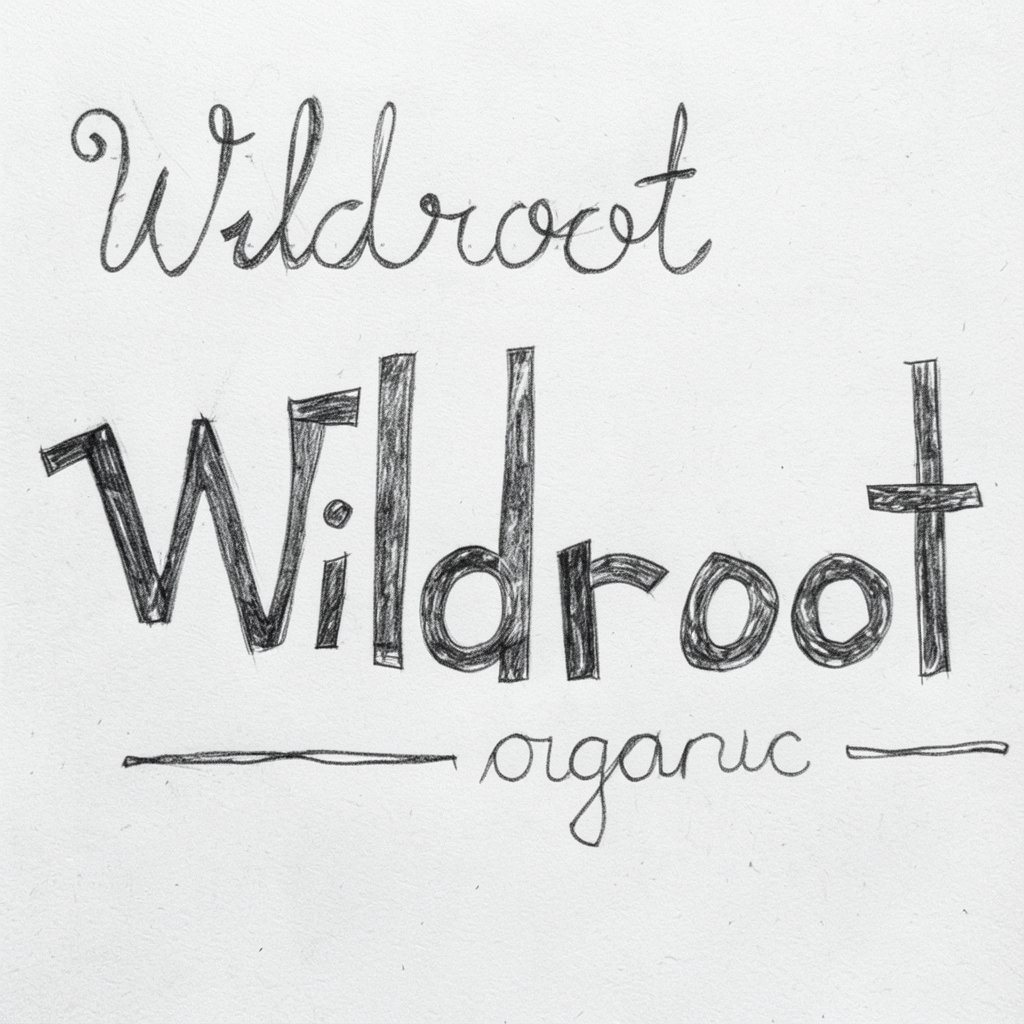 Wildroot
Wildroot
organic